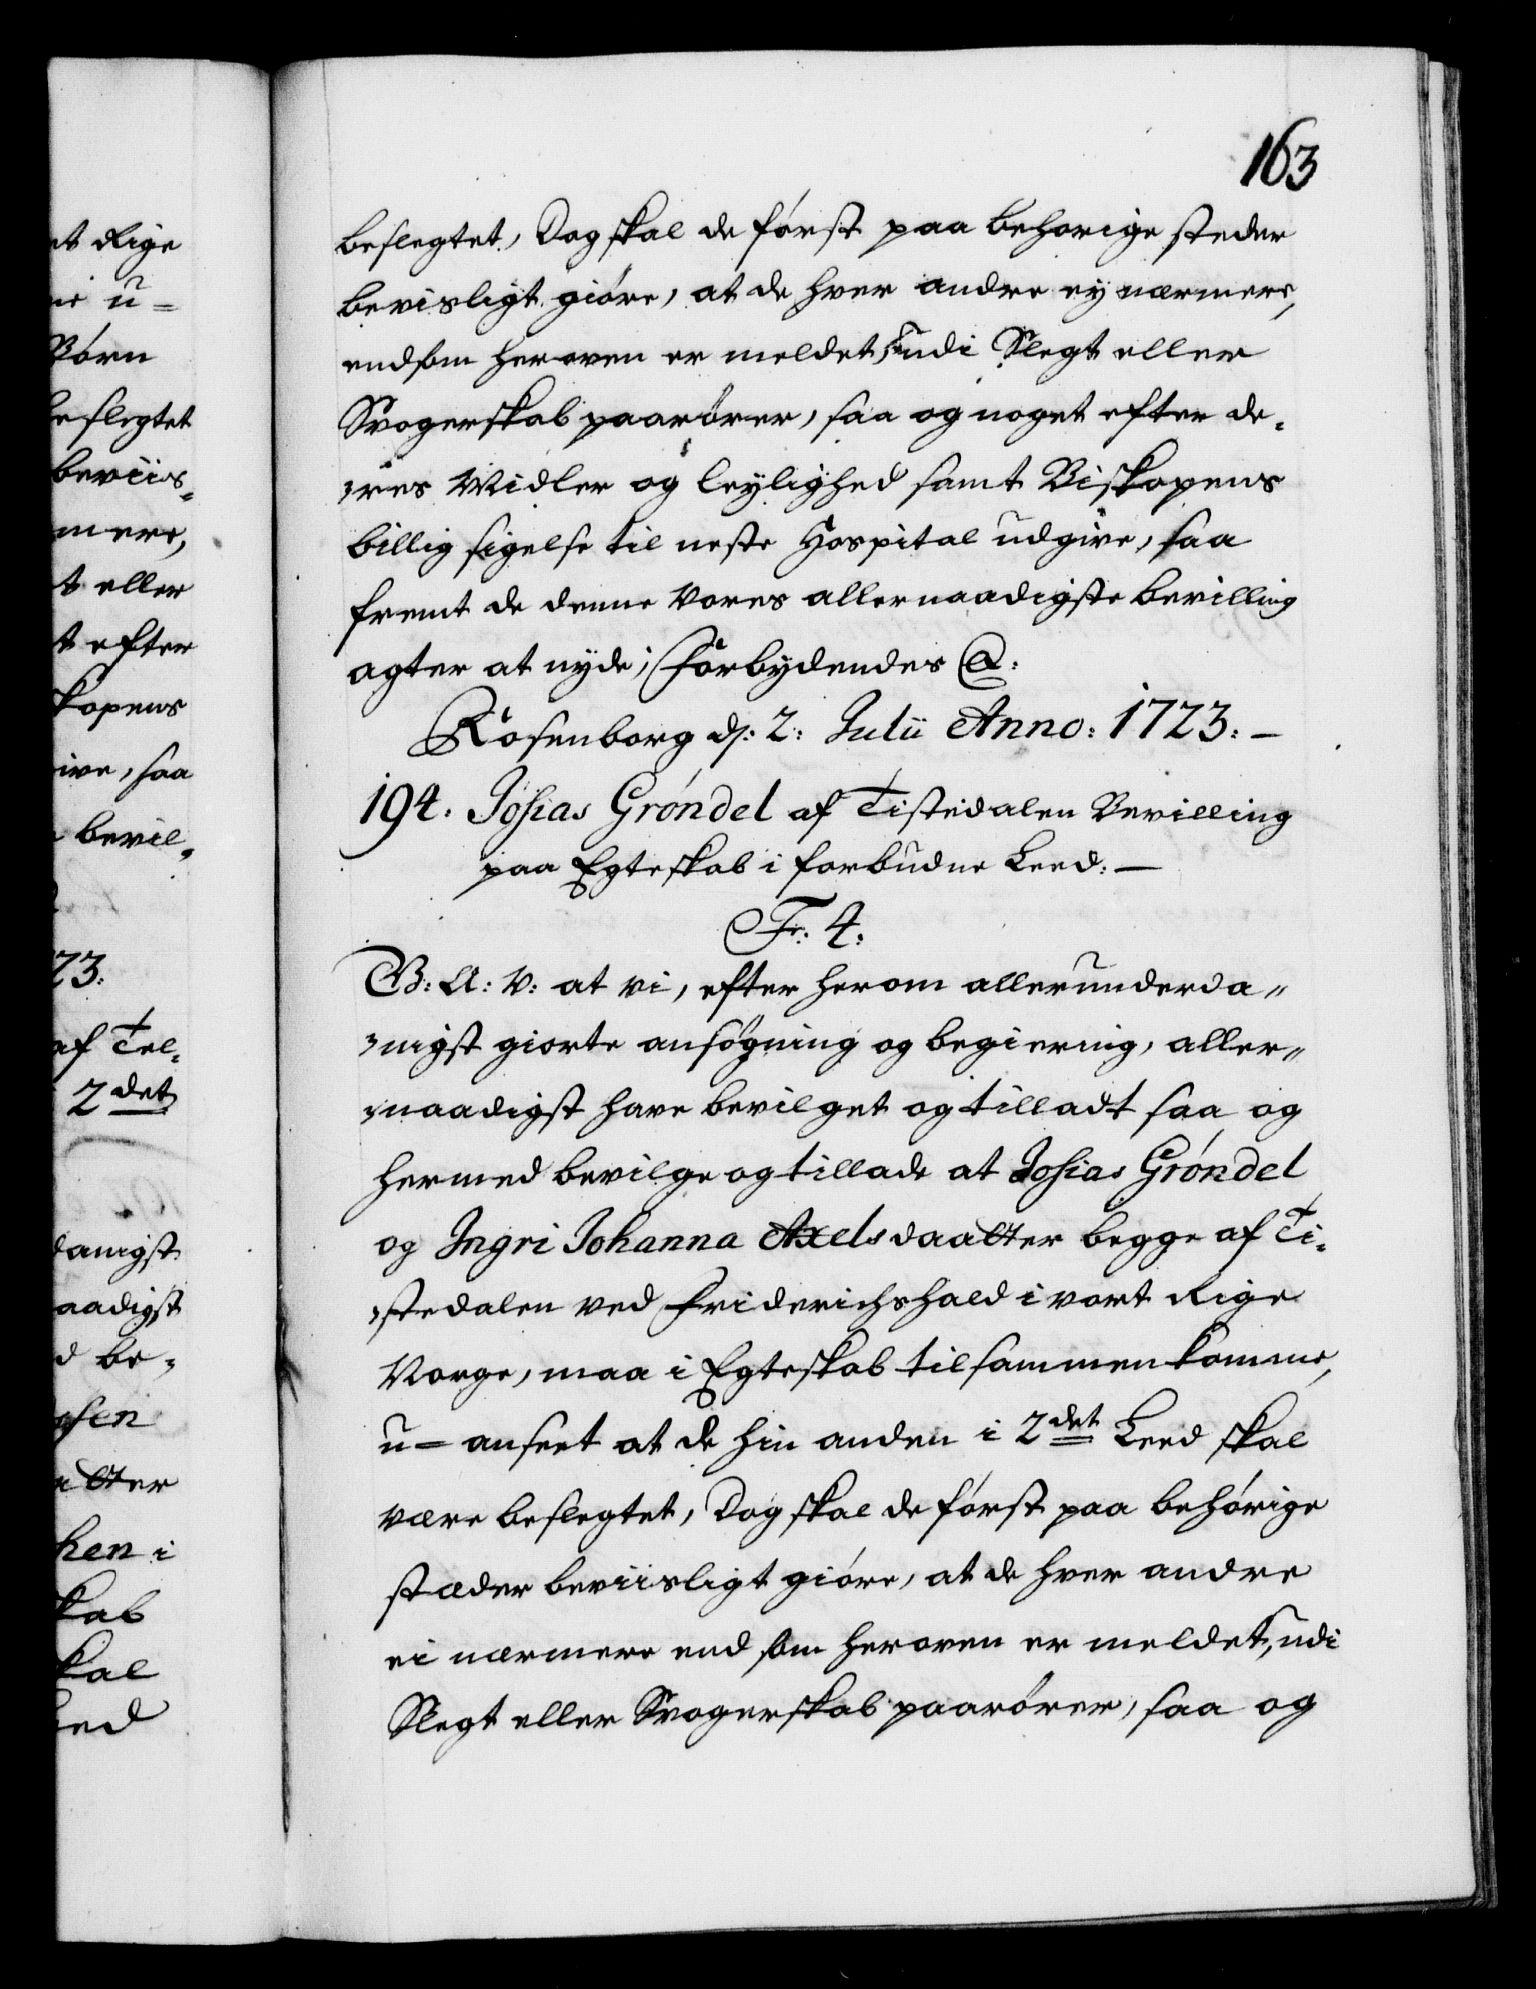 163
beslegtet, Dog skal de först paa behorige steder
bevisligt giöre, at de hver andre ey nærmere,
endsom heroven er meldet, udi Slegt eller
Svogerskab paarörer, saa og noget efter de-
res Midler og leylighed samt Biskopens
billig sigelse til neste Hospital udgive, saa
fremt de denne Vores allernaadigste bevilling
agter at nyde; Forbydendes &:
Rosenborg d: 2: Julii Anno: 1723: —
194. Josias Gröndel af Tistedalen Bevilling
paa Egteskab i forbudne Leed: —
Fr: 4:
G: A: V: at vi, efter herom allerunderda-
nigst giorte ansögning og begiering, aller-
naadigst have bevilget og tilladt saa og
hermed bevilge og tillade at Josias Gröndel
og Ingri Johanna Axelsdaatter begge af Ti-
stedalen ved Friderichshald i vort Rige
Norge, maa i Egteskab tilsammenkomme,
u-anseet at de hin anden i 2det Leed skal
være beslegtet, Dog skal de först paa behörige
stæder beviisligt giöre, at de hver andre
ei nærmere end som heroven er meldet, udi
Slegt eller Svogerskab paarörer, saa og
et Rige
u-
Börn
beslegtet
beviis-
mere,
t eller
t efter
kopens
ive, saa
bevil-
23:
af Tel-
2det
danigst
aadigst
d be-
sen
atter
hen i
skab
skal
hed